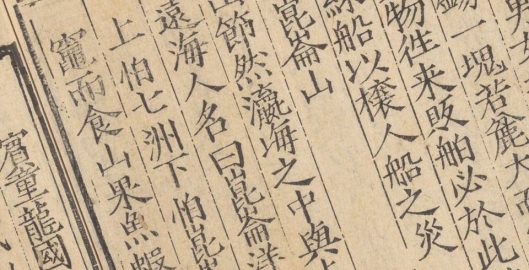 男女
一塊若麄大
物徃来販舶必於此
船以禳人船之災
崑崙山
山節然瀛海之中與
遠海人名曰崑崙洋
上怕七洲下怕崑
竈而食山果魚蝦
賓童龍國